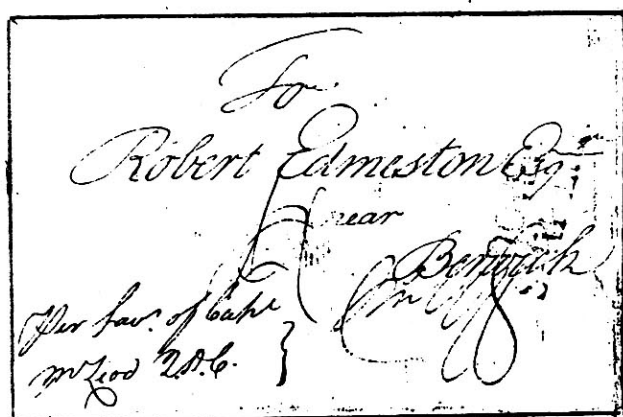 For
Robert Edmeston Esqr
near
Berwick
Per favr. of Capt
McLeod